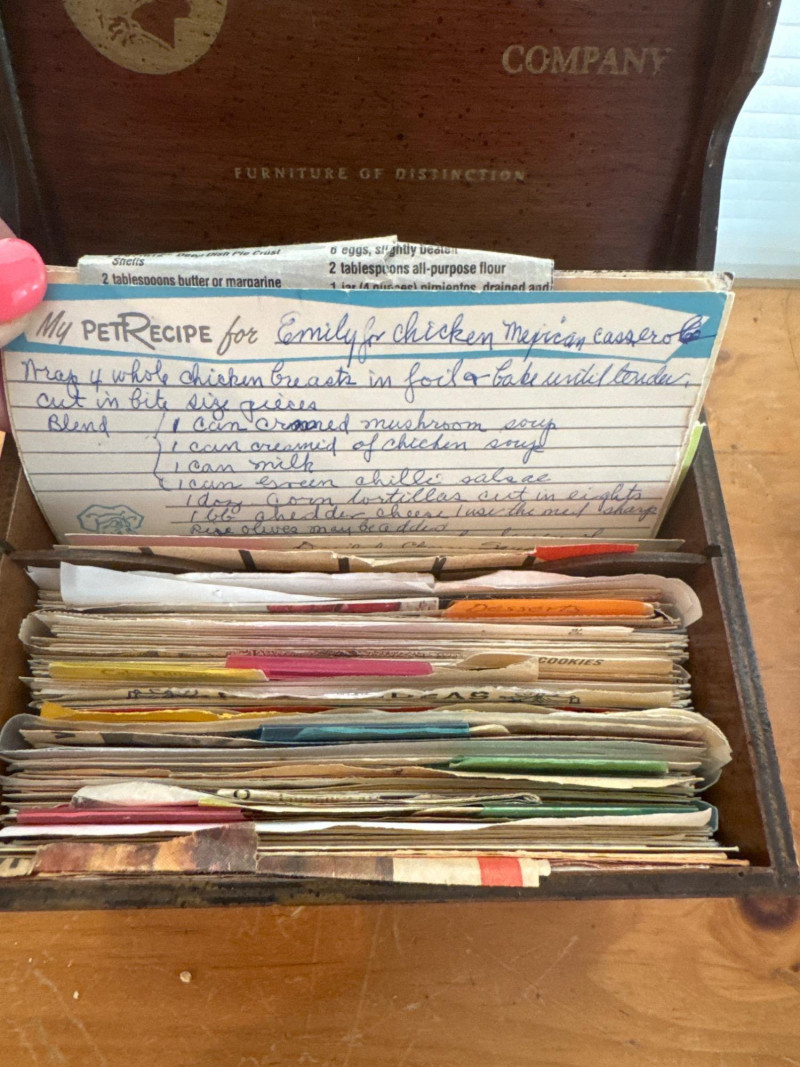 COMPANY
FURNITURE OF DISTINCTION
Deep Dish Pie Crust
Shells
2 tablespoons butter or margarine
6 eggs, slightly beaten
2 tablespoons all-purpose flour
1 jar (4 ounces) pimientos, drained and
My PETRECIPE for Emily for chicken Mexican casserole
Wrap 4 whole chicken breasts in foil & bake until tender,
cut in bite size pieces
Blend 1 can cremed mushroom soup
1 can cremid of chicken soup
1 can milk
1 can green chilli salsae
1 doz corn tortillas cut in eights
1 lb chedder cheese I use the med sharp
Ripe olives may be added
Desserts
COOKIES